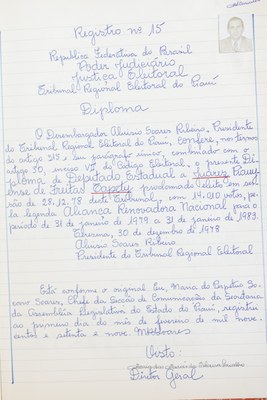 Registro nº 15
República Federativa do Brasil
Poder Judiciário
Justiça Eleitoral
Tribunal Regional Eleitoral do Piauí
Diploma
O Desembargador Aluisio Soares Ribeiro, Presidente
do Tribunal Regional Eleitoral do Piauí, confere, nos termos
do artigo 215 e seu parágrafo único, combinado com o
artigo 30, inciso VII, do Código Eleitoral, o presente Di-
ploma de Deputado Estadual a Juarez Piaui-
ense de Freitas Tapety proclamado eleito em ses-
são de 28.12.78 deste Tribunal, com 14.010 votos, pe-
la legenda Aliança Renovadora Nacional para o
período de 31 de janeiro de 1979 a 31 de janeiro de 1983.
Teresina, 30 de dezembro de 1978
Aluisio Soares Ribeiro
Presidente do Tribunal Regional Eleitoral
Está conforme o original. Eu, Maria do Perpétuo So-
corro Soares, Chefe da Secção de Comunicações da Secretaria
da Assembléia Legislativa do Estado do Piauí, registrei
ao primeiro dia do mês de fevereiro de mil nove
centos e setenta e nove. MPSSoares
Visto:
Diretor Geral